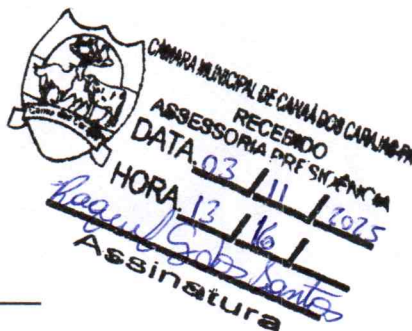 CÂMARA MUNICIPAL DE CANAÃ DOS CARAJÁS-PA
RECEBIDO
ASSESSORIA PRESIDÊNCIA
DATA 03 / 11 / 2025
HORA 13 / 16 /
Raquel Santos
Assinatura